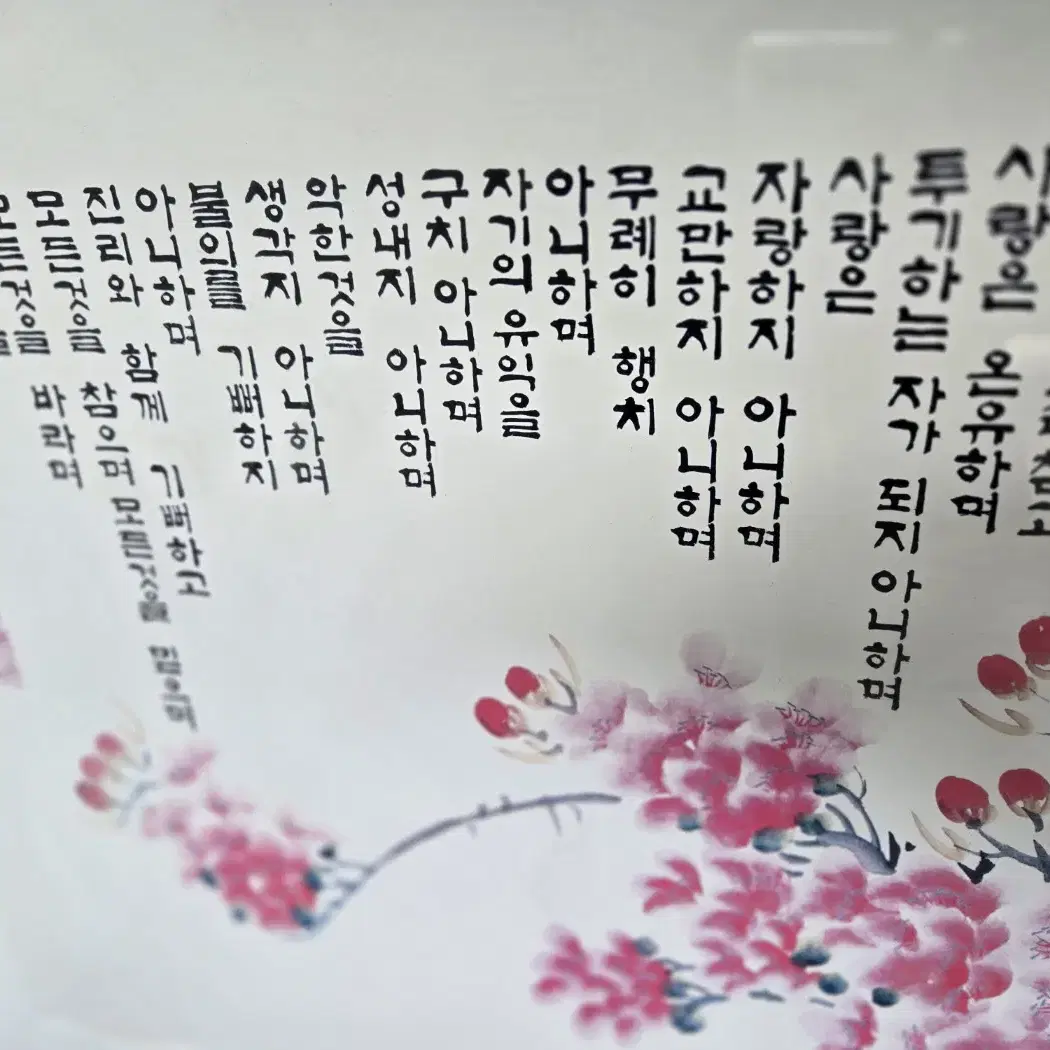 사랑은 온유하며
투기하는 자가 되지 아니하며
사랑은
자랑하지 아니하며
교만하지 아니하며
무례히 행치
아니하며
자기의 유익을
구치 아니하며
성내지 아니하며
악한것을
생각지 아니하며
불의를 기뻐하지
아니하며
진리와 함께 기뻐하고
모든것을 참으며 모든것을
모든것을 바라며